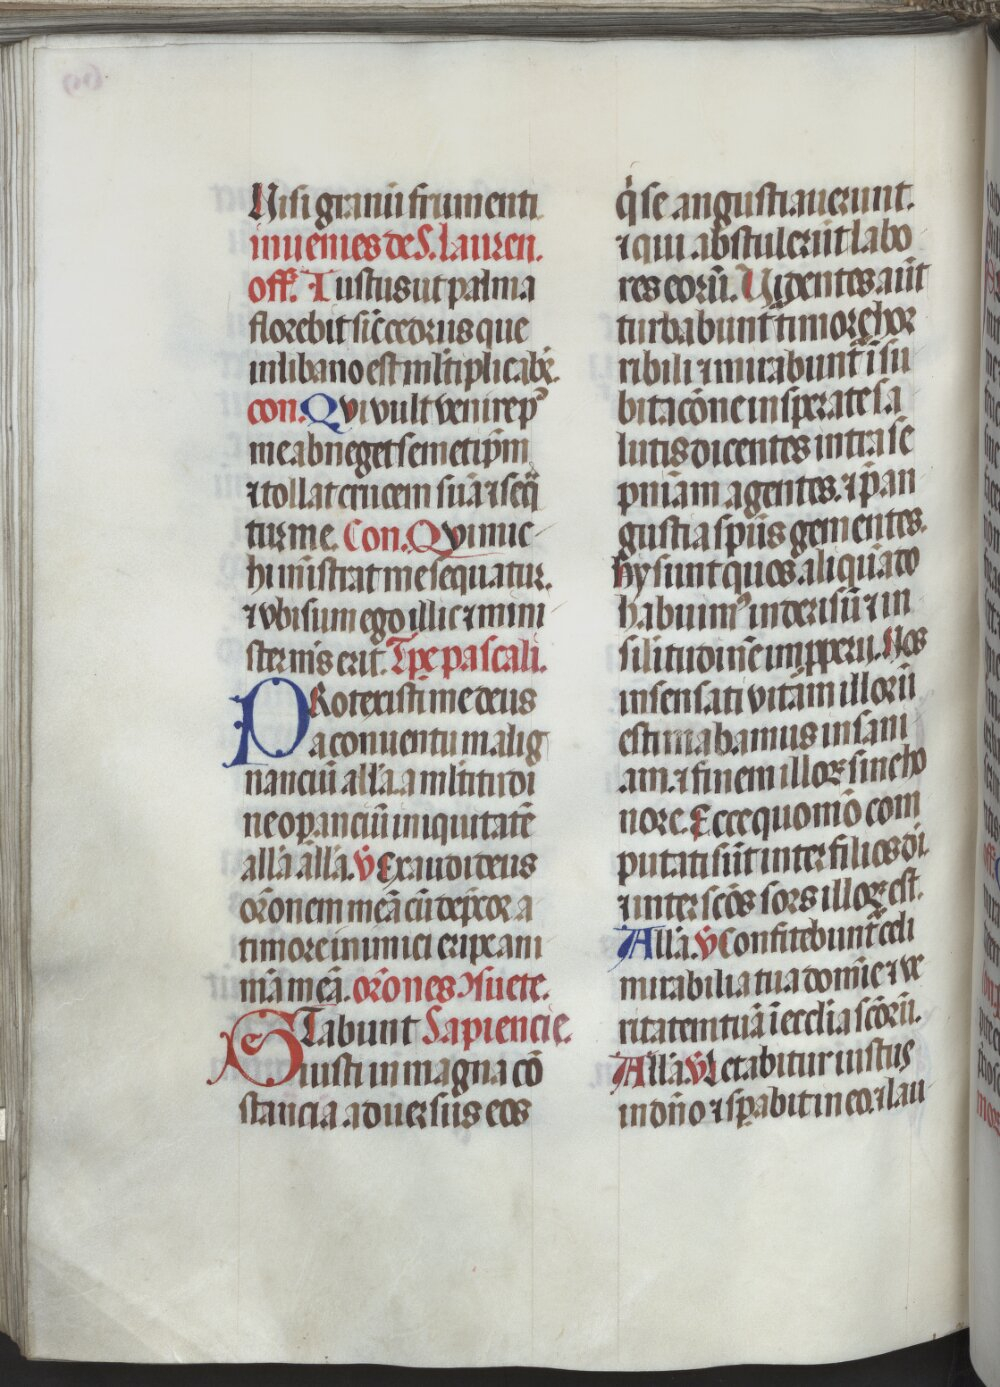 Nisi granū frumenti
inuenies de S. lauren.
off. Iustus ut palma
florebit sic̄ cedrus que
in libano est ml̄tiplicabr̄.
con. Qvi vult venire p9
me abneget semetip̄m
⁊ tollat crucem suā ⁊ seq̄
tur me. Con. Qvi mic
hi ministrat me sequatur.
⁊ vbi sum ego illic ⁊ mini
ster m̄s erit. Tp̄e pascali.
PRotexisti me deus
a conuentu malig
nanciū all'a. a ml̄titudi
ne operanciū iniquitatē
all'a all'a. v̄ Exaudi deus
orōnem meā cū dep̄cor a
timore inimici eripe am
mā meā. orōnes ꝯsuete.
STabunt Sapiencie.
iusti in magna cō
stancia aduersus eos
q̇ se angustiauerunt.
⁊ qui abstulerūt labo
res eorū. Uidentes aūt
turbabunt̄ timore hor
ribili ⁊ mirabunt̄ ī su
bitacōne insperate sa
lutis dicentes intra se
pniām agentes. ⁊ p̄ an
gustia sp̄us gementes.
hy sunt quos aliquādo
habuim9 in derisū ⁊ in
silitudinē impperii. Nos
insensati vitam illorū
estimabamus insani
am. ⁊ finem illoꝝ sine ho
nore. Ecce quomō com
putati sūt inter filios dī.
⁊ inter scōs sors illoꝝ est.
All'a. v̄ Confitebunt̄ celi
mirabilia tua domīe ⁊ ve
ritatem tuā ī eccl̄ia scōrū.
All'a. v̄ Letabitur iustus
in dn̄o ⁊ sp̄abit in eo. ⁊ lau